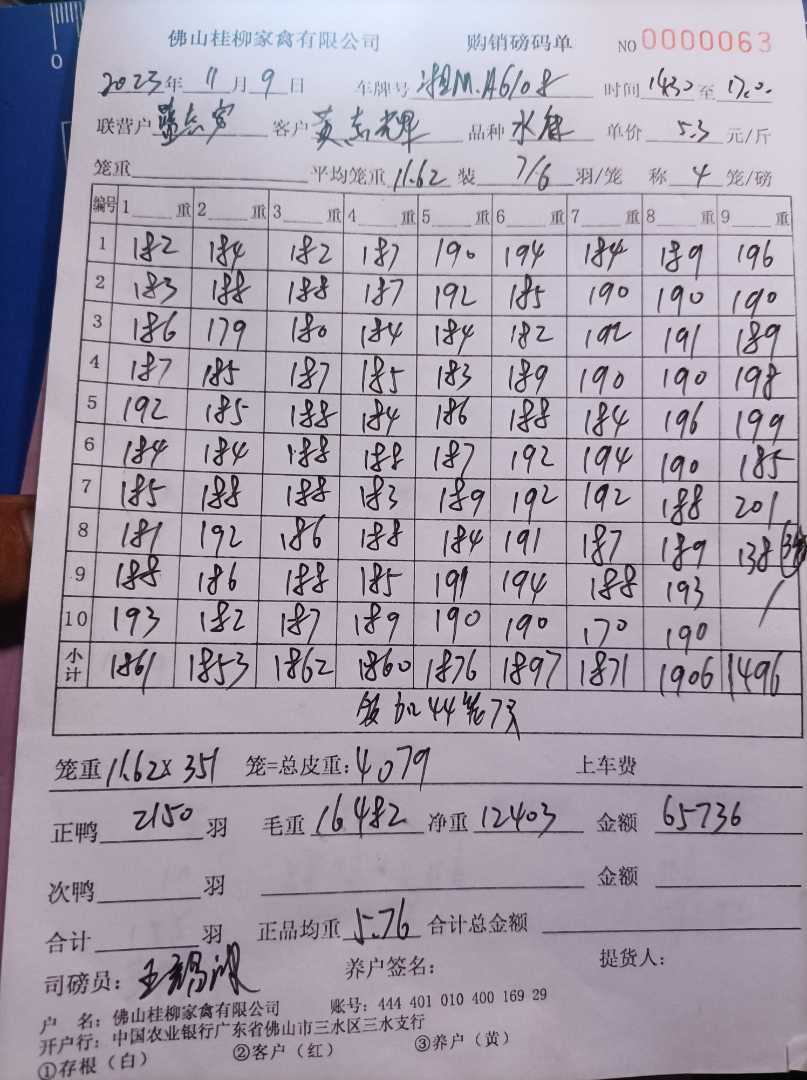 佛山桂柳家禽有限公司 购销磅码单 NO 0000063
2023年 11月 9日 车牌号 湘M.A6108 时间 1430 至 17.0.
联营户 客户 黄志辉 品种 水鸭 单价 5.3 元/斤
笼重 平均笼重 11.62 装 7/6 羽/笼 称 4 笼/磅
编号 1 重 2 重 3 重 4 重 5 重 6 重 7 重 8 重 9 重
1 182 184 182 187 190 194 184 189 196
2 183 188 188 187 192 185 190 190 190
3 186 179 180 184 184 182 192 191 189
4 187 185 187 185 183 189 190 190 198
5 192 185 188 184 186 188 184 196 199
6 184 184 188 188 187 192 194 190 185
7 185 188 188 183 189 192 192 188 201
8 181 192 186 188 184 191 187 189 138
9 188 186 188 185 191 194 188 193 /
10 193 182 187 189 190 190 170 190
小计 1861 1853 1862 1860 1876 1897 1871 1906 1496
44 7
笼重 11.62 x 351 笼=总皮重: 4079 上车费
正鸭 2150 羽 毛重 16482 净重 12403 金额 65736
次鸭 羽 金额
合计 羽 正品均重 5.76 合计总金额
司磅员: 王 养户签名: 提货人:
户 名: 佛山桂柳家禽有限公司 账号: 444 401 010 400 169 29
开户行: 中国农业银行广东省佛山市三水区三水支行
①存根(白) ②客户(红) ③养户(黄)